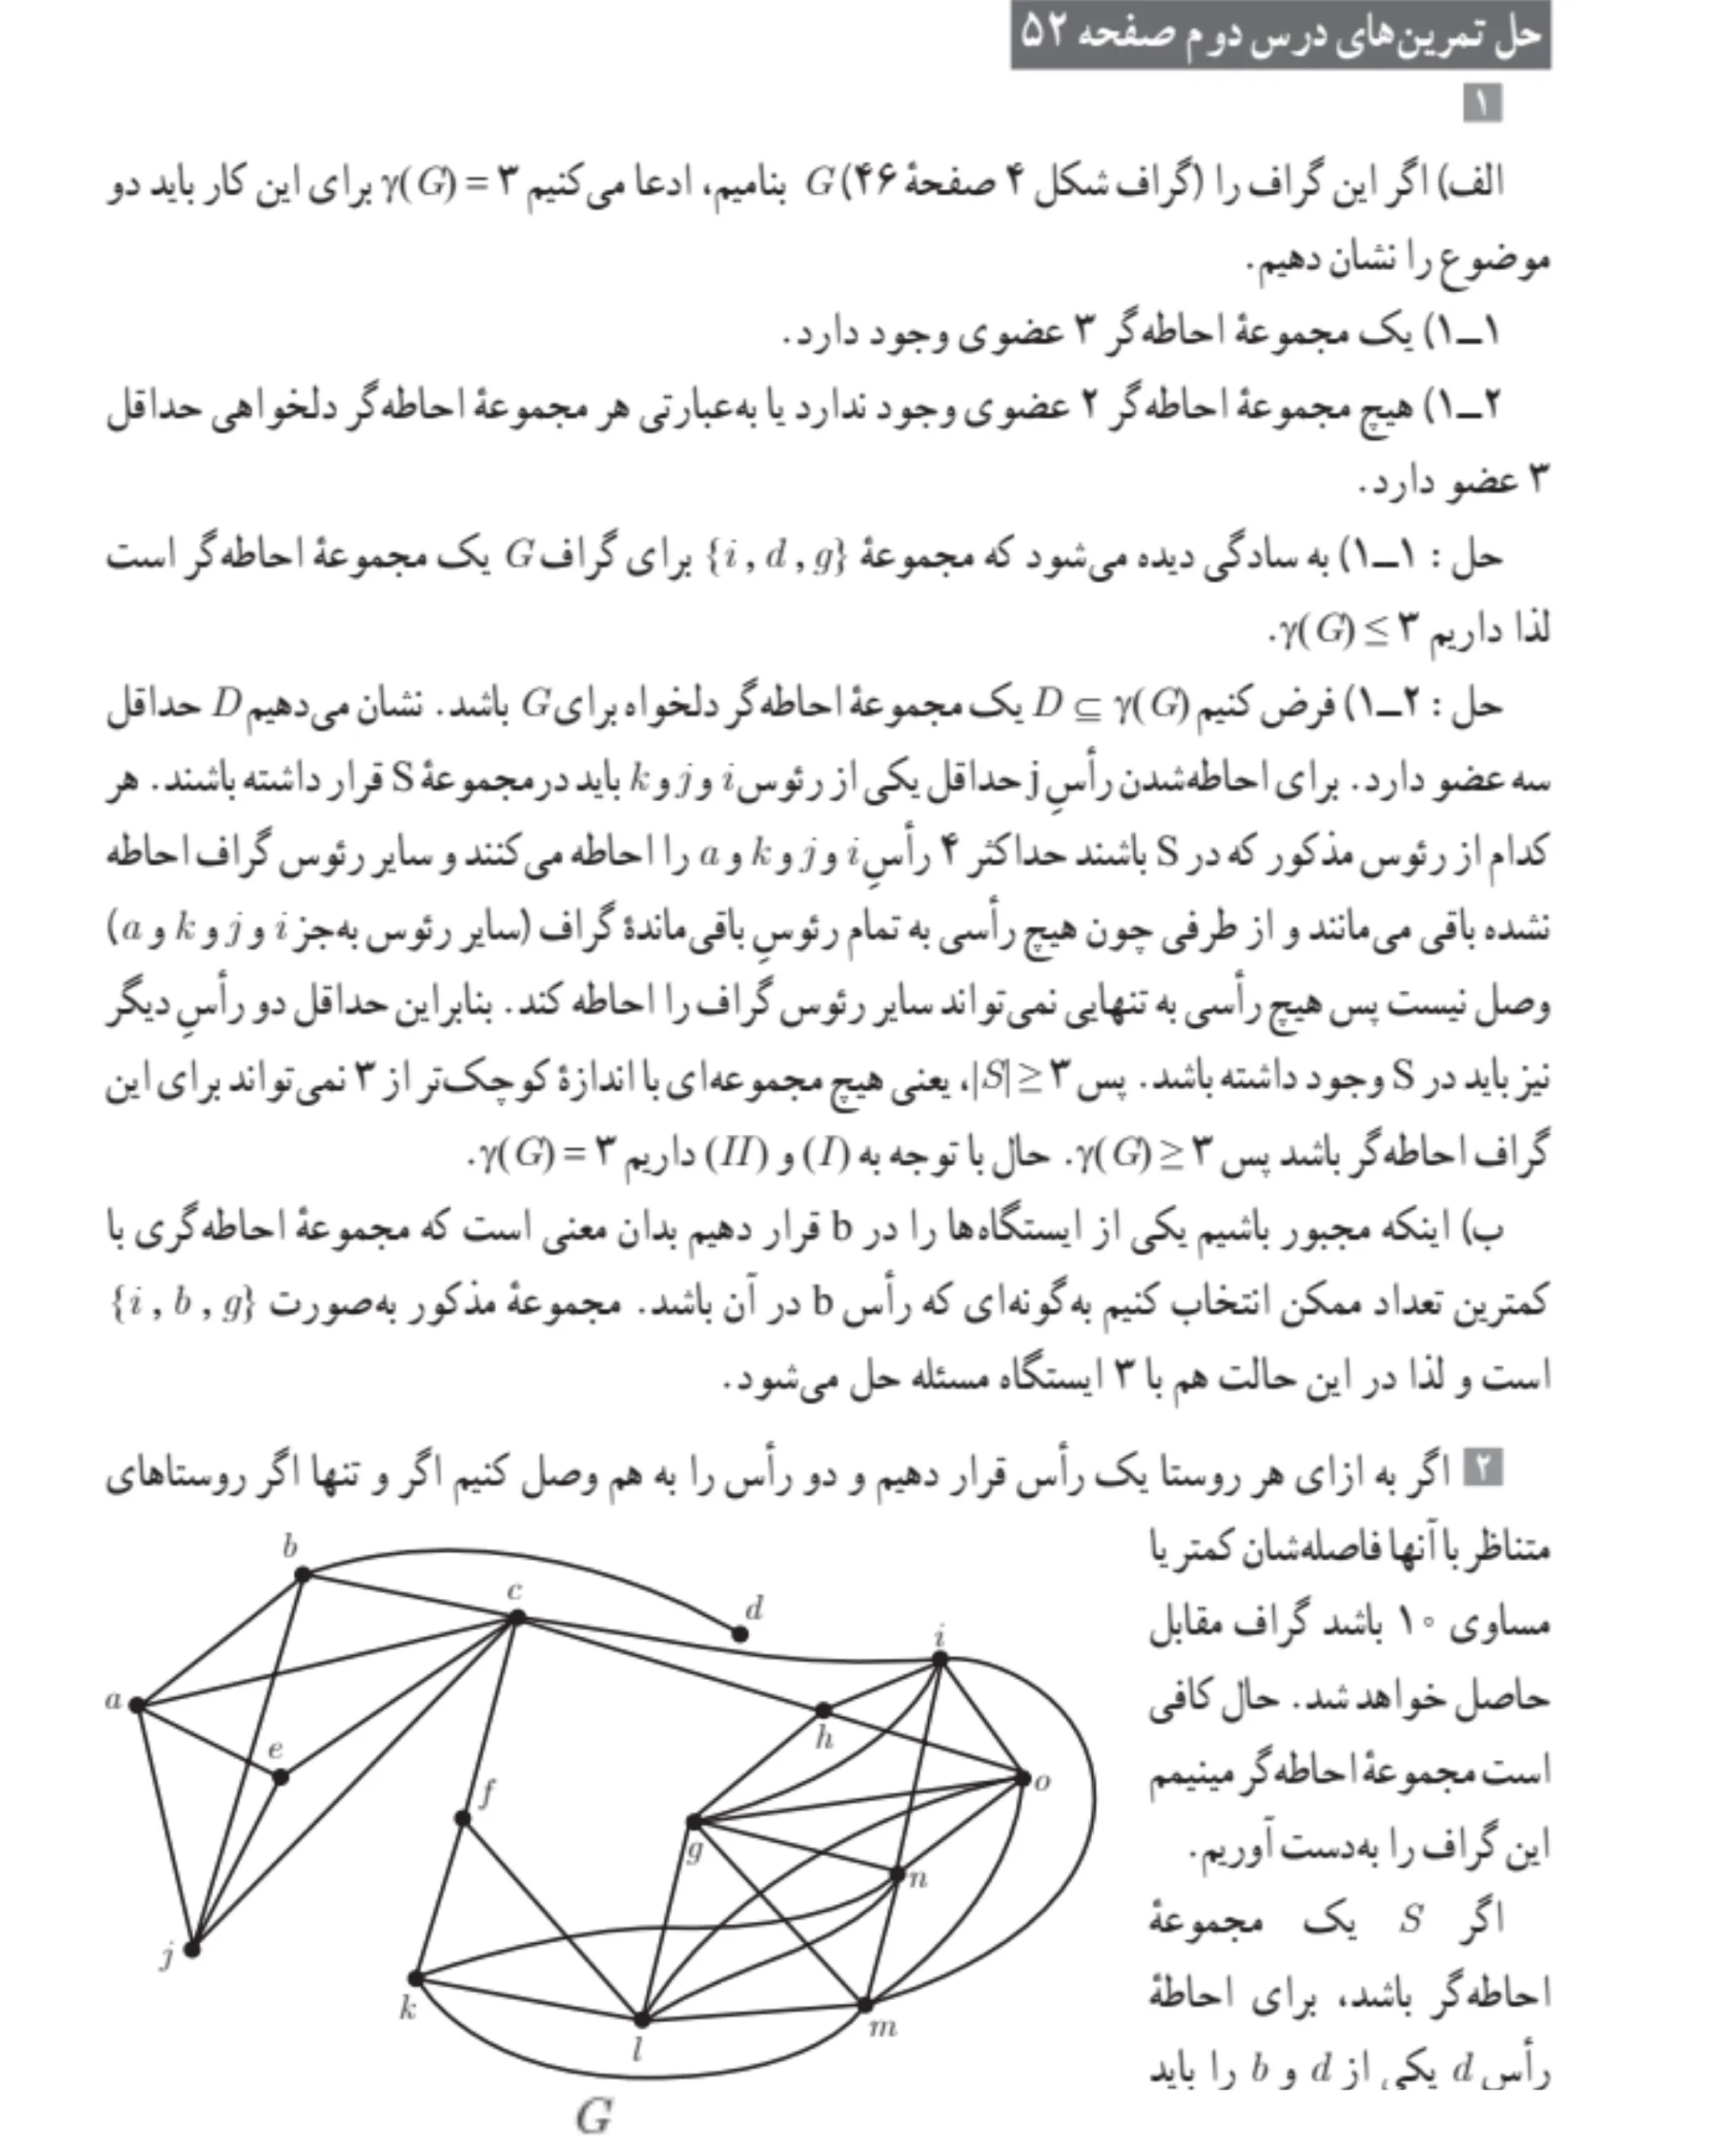 حل تمرین‌های درس دوم صفحه ۵۲
۱
الف) اگر این گراف را (گراف شکل ۴ صفحهٔ ۴۶) G بنامیم، ادعا می‌کنیم γ(G) = ۳ برای این کار باید دو
موضوع را نشان دهیم.
۱ــ۱) یک مجموعهٔ احاطه‌گر ۳ عضوی وجود دارد.
۲ــ۱) هیچ مجموعهٔ احاطه‌گر ۲ عضوی وجود ندارد یا به‌عبارتی هر مجموعهٔ احاطه‌گر دلخواهی حداقل
۳ عضو دارد.
حل : ۱ــ۱) به سادگی دیده می‌شود که مجموعهٔ {i , d , g} برای گراف G یک مجموعهٔ احاطه‌گر است
لذا داریم γ(G) ≤ ۳.
حل : ۲ــ۱) فرض کنیم D ⊆ γ(G) یک مجموعهٔ احاطه‌گر دلخواه برای G باشد. نشان می‌دهیم D حداقل
سه عضو دارد. برای احاطه‌شدن رأسِ j حداقل یکی از رئوس i و j و k باید درمجموعهٔ S قرار داشته باشند. هر
کدام از رئوس مذکور که در S باشند حداکثر ۴ رأسِ i و j و k و a را احاطه می‌کنند و سایر رئوس گراف احاطه
نشده باقی می‌مانند و از طرفی چون هیچ رأسی به تمام رئوسِ باقی‌ماندهٔ گراف (سایر رئوس به‌جز i و j و k و a)
وصل نیست پس هیچ رأسی به تنهایی نمی‌تواند سایر رئوس گراف را احاطه کند. بنابراین حداقل دو رأسِ دیگر
نیز باید در S وجود داشته باشد. پس |S| ≥ ۳، یعنی هیچ مجموعه‌ای با اندازهٔ کوچک‌تر از ۳ نمی‌تواند برای این
گراف احاطه‌گر باشد پس γ(G) ≥ ۳. حال با توجه به (I) و (II) داریم γ(G) = ۳.
ب) اینکه مجبور باشیم یکی از ایستگاه‌ها را در b قرار دهیم بدان معنی است که مجموعهٔ احاطه‌گری با
کمترین تعداد ممکن انتخاب کنیم به‌گونه‌ای که رأس b در آن باشد. مجموعهٔ مذکور به‌صورت {i , b , g}
است و لذا در این حالت هم با ۳ ایستگاه مسئله حل می‌شود.
۲ اگر به ازای هر روستا یک رأس قرار دهیم و دو رأس را به هم وصل کنیم اگر و تنها اگر روستاهای
متناظر با آنها فاصله‌شان کمتر یا
مساوی ۱۰ باشد گراف مقابل
حاصل خواهد شد. حال کافی
است مجموعهٔ احاطه‌گر مینیمم
این گراف را به‌دست آوریم.
اگر S یک مجموعهٔ
احاطه‌گر باشد، برای احاطهٔ
رأس d یکی از d و b را باید
b
c
d
i
a
h
e
o
f
g
n
j
k
l
m
G